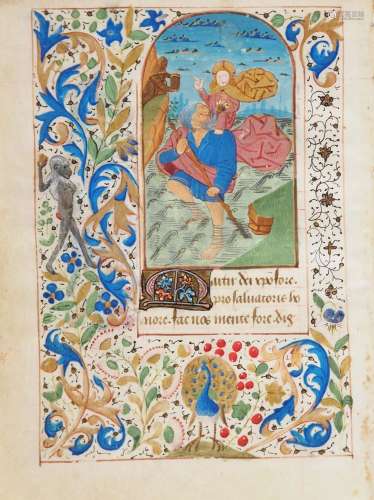 Martir dei xp̄ofore.
pro salvatoris ho
nore. fac nos mente fore. dig